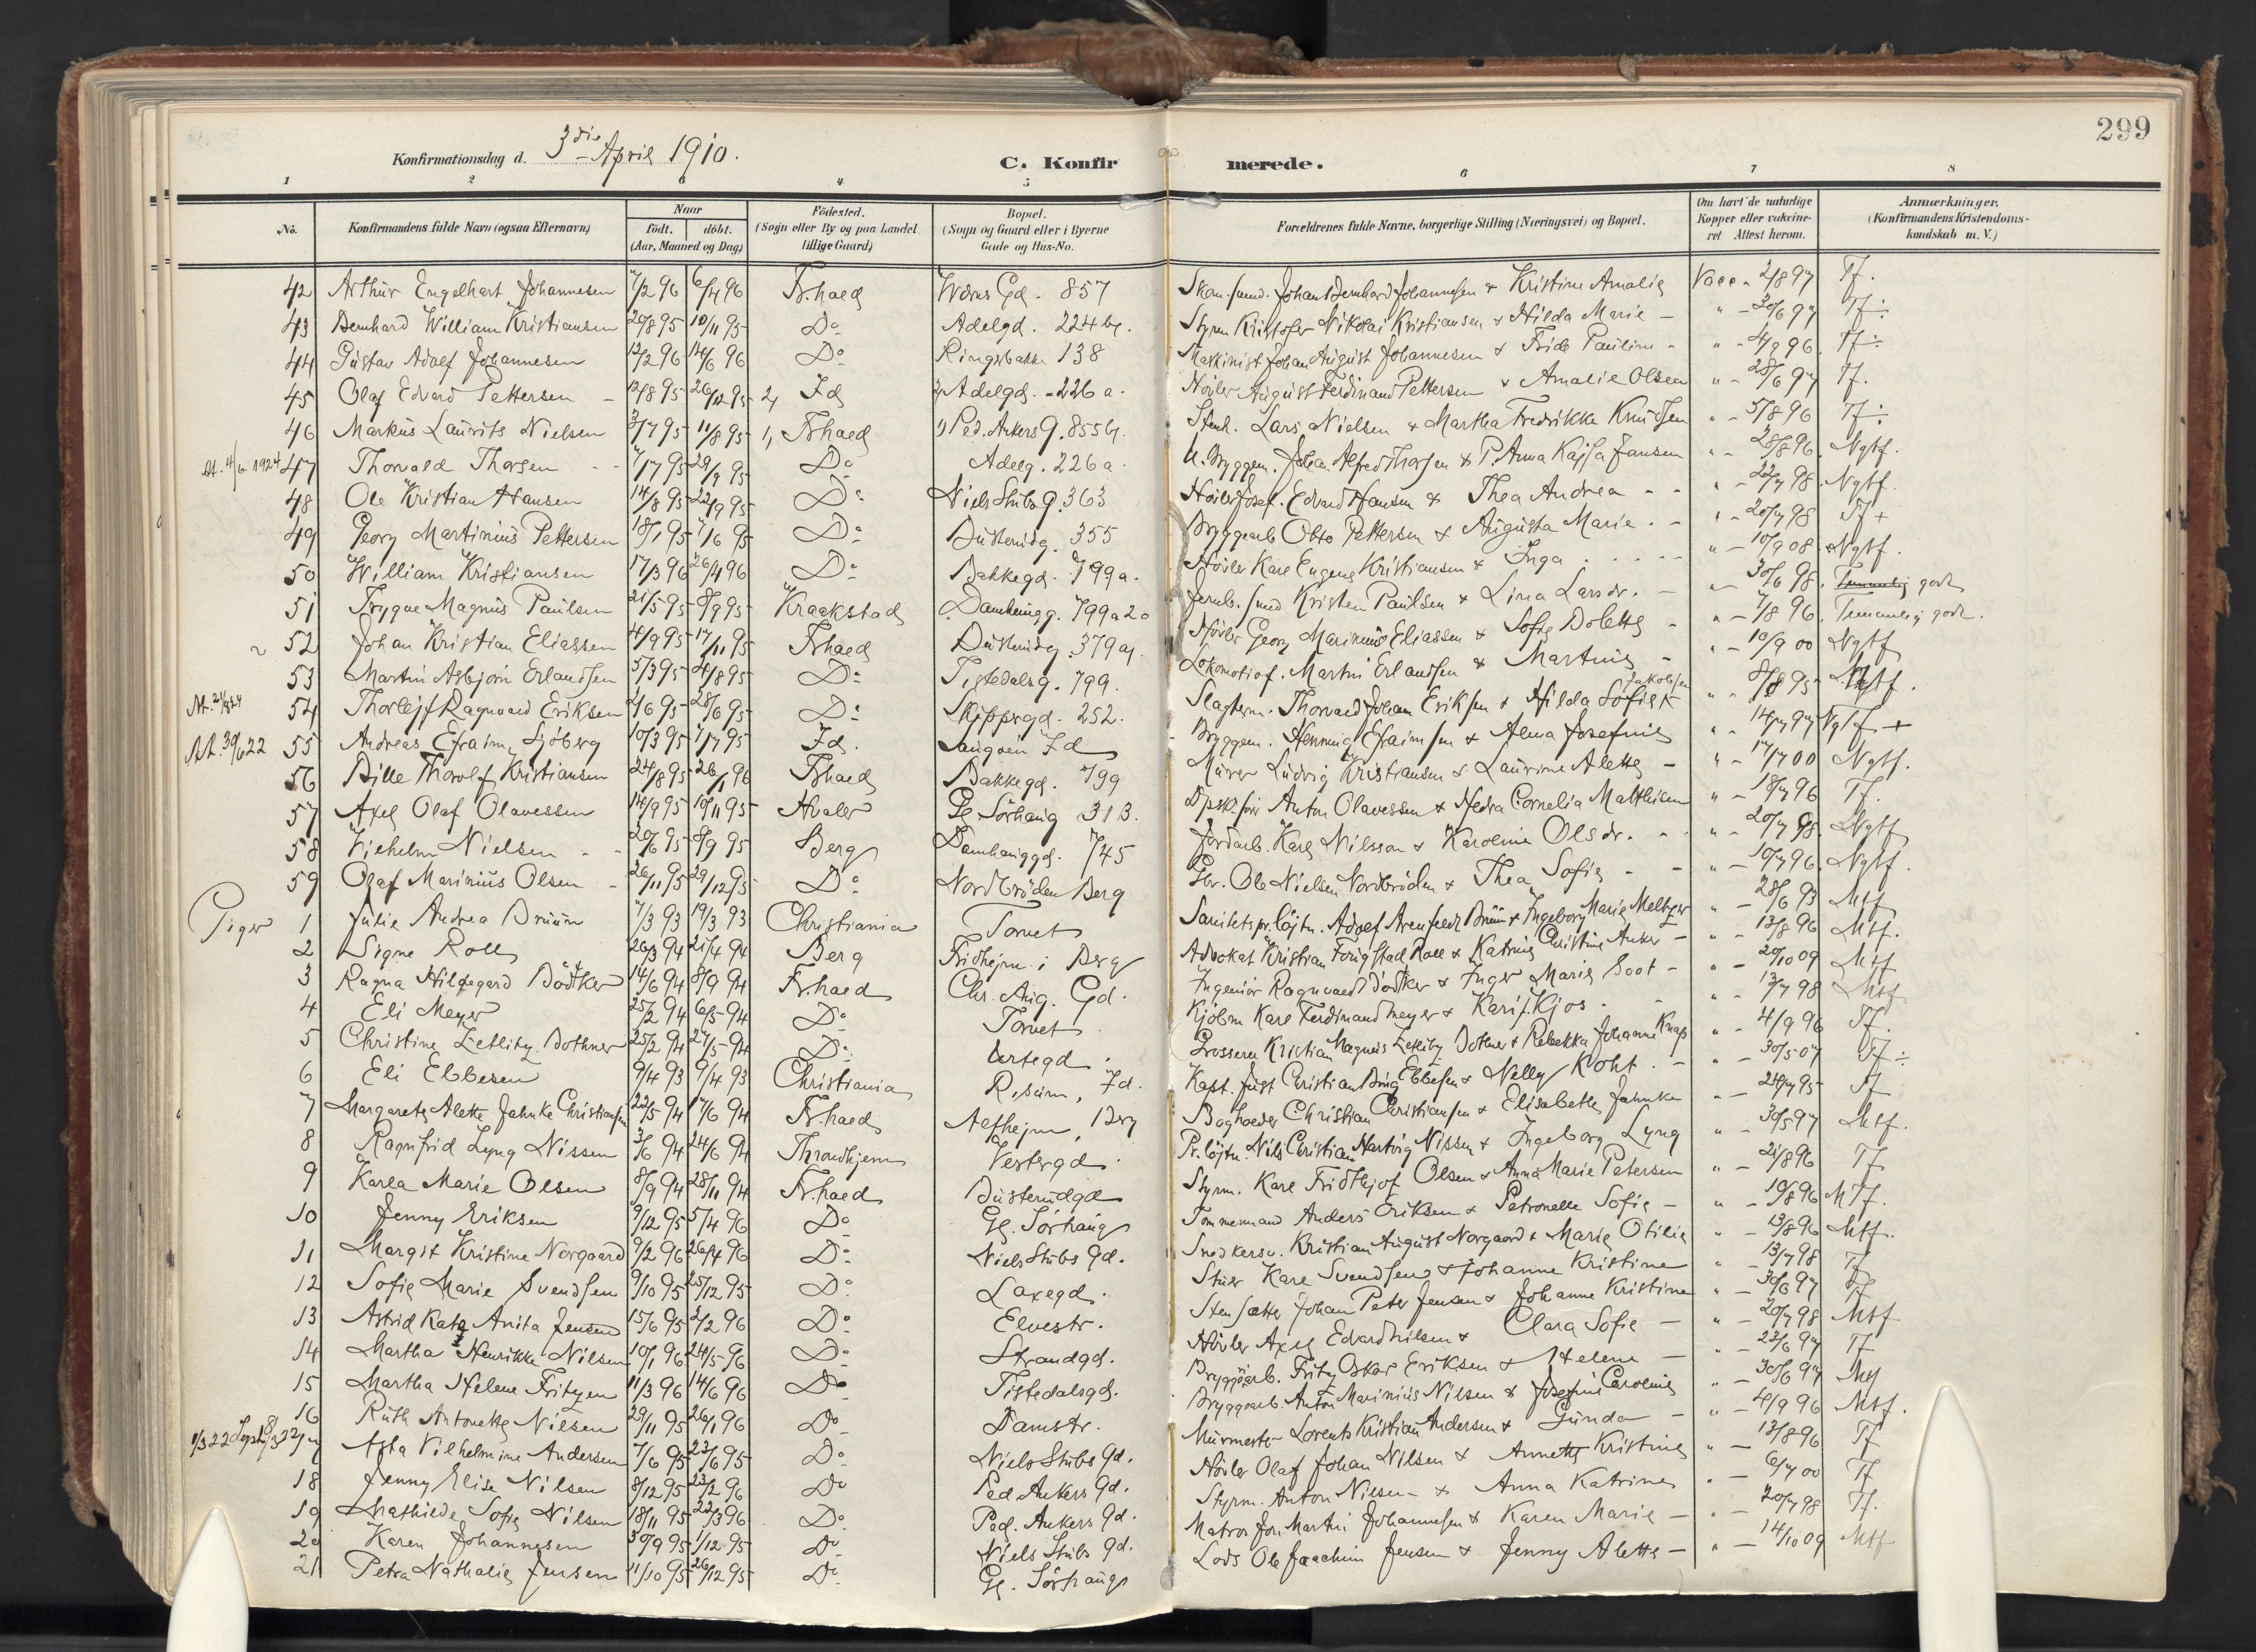 299
Konfirmationsdag d. 3die April 1910.
C. Konfirmerede.
1 2 3 4 5 6 7 8
No. Konfirmandens fulde Navn (ogsaa Efternavn) Naar født. døbt. (Aar, Maaned og Dag) Fødested. (Sogn eller By og paa Landet tillige Gaard) Bopæl. (Sogn og Gaard eller i Byerne Gade og Hus-No. Forældrenes fulde Navne, borgerlige Stilling (Næringsvei) og Bopæl. Om havt de naturlige Kopper eller vakcineret Attest herom. Anmærkninger. (Konfirmandens Kristendomskundskab m. V.)
42 Arthur Engelhart Johannesen 7/2 96 6/4 96 Fr.hald Wærns Gd. 857 Johan Bernhard Johannesen & Kristine Amalie Vacc. 2/8 97 Tf.
43 Bernhard William Kristiansen 20/8 95 10/11 95 Do Adelgd. 224 b. Styrm Kristofer Nikolai Kristiansen & Hilda Marie - " - 30/6 97 Tf÷
44 Gustav Adolf Johannesen 12/2 96 14/6 96 Do Ringsbakke 138 Maskinist Johan August Johannesen & Frida Pauline - " - 4/9 96 Tf÷
45 Olaf Edvard Pettersen - 12/8 95 26/12 95 2, Id 2, Adelgd. - 226 a. Høvler August Ferdinand Pettersen & Amalie Olsen " - 28/6 97 Tf.
46 Markus Laurits Nielsen 3/7 95 11/8 95 1, Frhald 1) Ped. Ankers g. 855 b. Stenh. Lars Nielsen & Martha Fredrikke Knudsen " - 5/8 96 Tf÷
At. 4/6 1924 47 Thorvald Thorsen - - 7/7 95 29/9 95 Do Adelg. 226 a. U. Bryggem. Johan Alfred Thorsen & P. Anna Kajsa Jansen " - 28/8 96 Ngtf.
48 Ole Kristian Hansen 14/8 95 22/9 95 Do Niels Stubs g. 363 Høvler Josef. Edvard Hansen & Thea Andrea - - " - 22/7 98 Ngtf.
49 Georg Martinius Pettersen 18/1 95 7/6 95 Do Busterudg. 355 Bryggearb Otto Pettersen & Augusta Marie - - " - 20/7 98 Tf +
50 William Kristiansen 17/3 96 26/4 96 Do Bakkegd. 799 a. Høvler Karl Eugene Kristiansen & Inga - - - - " - 10/9 08 Ngtf.
51 Trygve Magnus Paulsen 21/5 95 8/9 95 Kraakstad Damhaugg. 799 a 20 Jernb. smed Kristen Paulsen & Lina Larsdr. - " - 30/6 98. Temmelig godt
52 Johan Kristian Eliassen 4/9 95 17/11 95 Frhald Busterudg. 379 a. Høvler Georg Marinius Eliassen & Sofie Dolette - " - 7/8 96. Temmelig godt.
53 Martin Asbjørn Erlandsen 5/3 95 4/8 95 Do Tistedalsg. 799. Lokomotivf. Martin Erlandsen & Martine - " - 10/9 00 Ngtf
At. 21/8 24 54 Thorleif Ragnvald Eriksen 2/6 95 28/6 95 Do Skippergd. 252. Slagterm. Thorvald Johan Eriksen & Hilda Sofie Jakobsen " - 8/8 95 Ngtf.
At. 30/6 22 55 Andreas Efraim Sjöberg 10/3 95 7/7 95 Id. Langøen Id Bryggem. Henning Efraimsen & Alma Josefine " - 14/7 97 NgTf +
56 Bille Thorolf Kristiansen 24/8 95 26/1 96 Frhald Bakkegd. 799 Murer Ludvig Kristiansen & Laurine Alette - " - 17/7 00 Ngtf.
57 Axel Olaf Olavessen 14/9 95 10/11 95 Hvaler Gl Sørhaug 313. Anton Olavessen & Hedra Cornelia Mathisen " - 18/7 96 Tf.
58 Vilhelm Nielsen - - 20/6 95 8/9 95 Berg Damhauggd. 745 Jordarb. Karl Nilsson & Karoline Olsdr. - - " - 20/7 98 Ngtf
59 Olaf Marinius Olsen - 26/11 95 29/12 95 Do Nordbrøden Berg Gbr. Ole Nielsen Nordbrøden & Thea Sofie - - " - 10/7 96. Ngtf.
Piger 1 Julie Andrea Bruun 7/3 93 19/3 93 Christiania Torvet Sanitetspr.løjtn. Adolf Arenfeldt Bruun & Ingeborg Marie Meltzer " - 28/6 93 Mtf
2 Signe Roll 26/3 94 21/4 94 Berg Fridhejm i Berg Advokat Kristian Forigstad Roll & Katrine Christine Anker - " - 13/8 96 Mtf.
3 Ragna Hildegard Bødtker 14/6 94 8/9 94 Fr.hald Chr. Aug. Gd. Ingeniør Ragnvald Bødtker & Inger Marie Soot - " - 20/10 09 Mtf
4 Eli Meyer 25/2 94 6/5 94 Do Torvet Kjøbm Karl Ferdinand Meyer & Kari f. Kjos - - " - 13/7 98 Mtf
5 Christine Zetlitz Dothner 25/2 94 27/5 94 Do Urtegd. Grosserer Kristian Magnus Zetlitz Dothner & Rebekka Johanne Knap " - 4/9 96 Tf.
6 Eli Ebbesen 9/4 93 9/4 93 Christiania Risum, Id. Kapt. Just Christian Bing Ebbesen & Nelly Koht - - " - 30/5 07 Tf÷
7 Margarete Alette Jahnke Christiansen 22/5 94 17/6 94 Fr.hald Alfhejm, Berg Bogholder Christian Christiansen & Elisabeth Jahnke " - 24/7 95 Tf
8 Ragnfrid Lyng Nissen 3/6 94 24/6 94 Throndhjem Vestergd. Pr.løjtn. Nils Christian Hartvig Nissen & Ingeborg Lyng " - 30/5 97 Mtf.
9 Karla Marie Olsen 8/9 94 28/11 94 Fr.hald Busterudgd Styrm. Karl Fridthjof Olsen & Anna Marie Petersen " - 21/8 96 Tf
10 Jenny Eriksen 9/12 95 5/4 96 Do Gl. Sørhaug Tømmermand Anders Eriksen & Petronelle Sofie - " - 10/8 96 MTf.
11 Margit Kristine Norgaard 9/2 96 26/4 96 Do Niels Stubs Gd. Snedkersv. Kristian August Norgaard & Marie Otilie " - 13/8 96 Mtf.
12 Sofie Marie Svendsen 9/10 95 25/12 95 Do Laxegd. Stuer Karl Svendsen & Johanne Kristine " - 13/7 98 Tf
13 Astrid Kata Anita Jensen 15/6 95 2/2 96 Do Elvestr. Stensætter Johan Peter Jensen & Johanne Kristine " - 30/6 97 Tf
14 Martha Henrikke Nilsen 10/1 96 24/5 96 Do Strandgd. Høvler Axel Edvard Nilsen & Clara Sofie - " - 20/7 98 Mtf
15 Martha Helene Fritzen 11/3 96 14/6 96 Do Tistedalsgd. Bryggearb. Fritz Oskar Eriksen & Helene - " - 22/6 97 Tf
16 Ruth Antonette Nilsen 29/11 95 26/1 96 Do Damstr. Bryggearb. Anton Marinius Nilsen & Josefine Caroline " - 30/6 97 Mtf
17 Asta Vilhelmine Andersen 7/6 95 23/6 95 Do Niels Stubs Gd. Murmester Lorents Kristian Andersen & Gunda - " - 4/9 96 Mtf.
18 Jenny Elise Nilsen 8/12 95 23/2 96 Do Ped Ankers Gd. Høvler Olaf Johan Nilsen & Annette Kristine " - 13/8 96 Tf
19 Mathilde Sofie Nilsen 18/11 95 22/3 96 Do Ped. Ankers Gd. Styrm. Anton Nilsen - & Anna Katrine " - 6/7 00 Tf
20 Karen Johannesen 30/9 95 1/12 95 Do Niels Stubs Gd. Matros Jon Martin Johannesen & Karen Marie - " - 20/7 98 Tf.
21 Petra Nathalie Jensen 11/10 95 26/12 95 Do Gl. Sørhaug Lods Ole Joachim Jensen & Jenny Alette - " - 14/10 09 Mtf